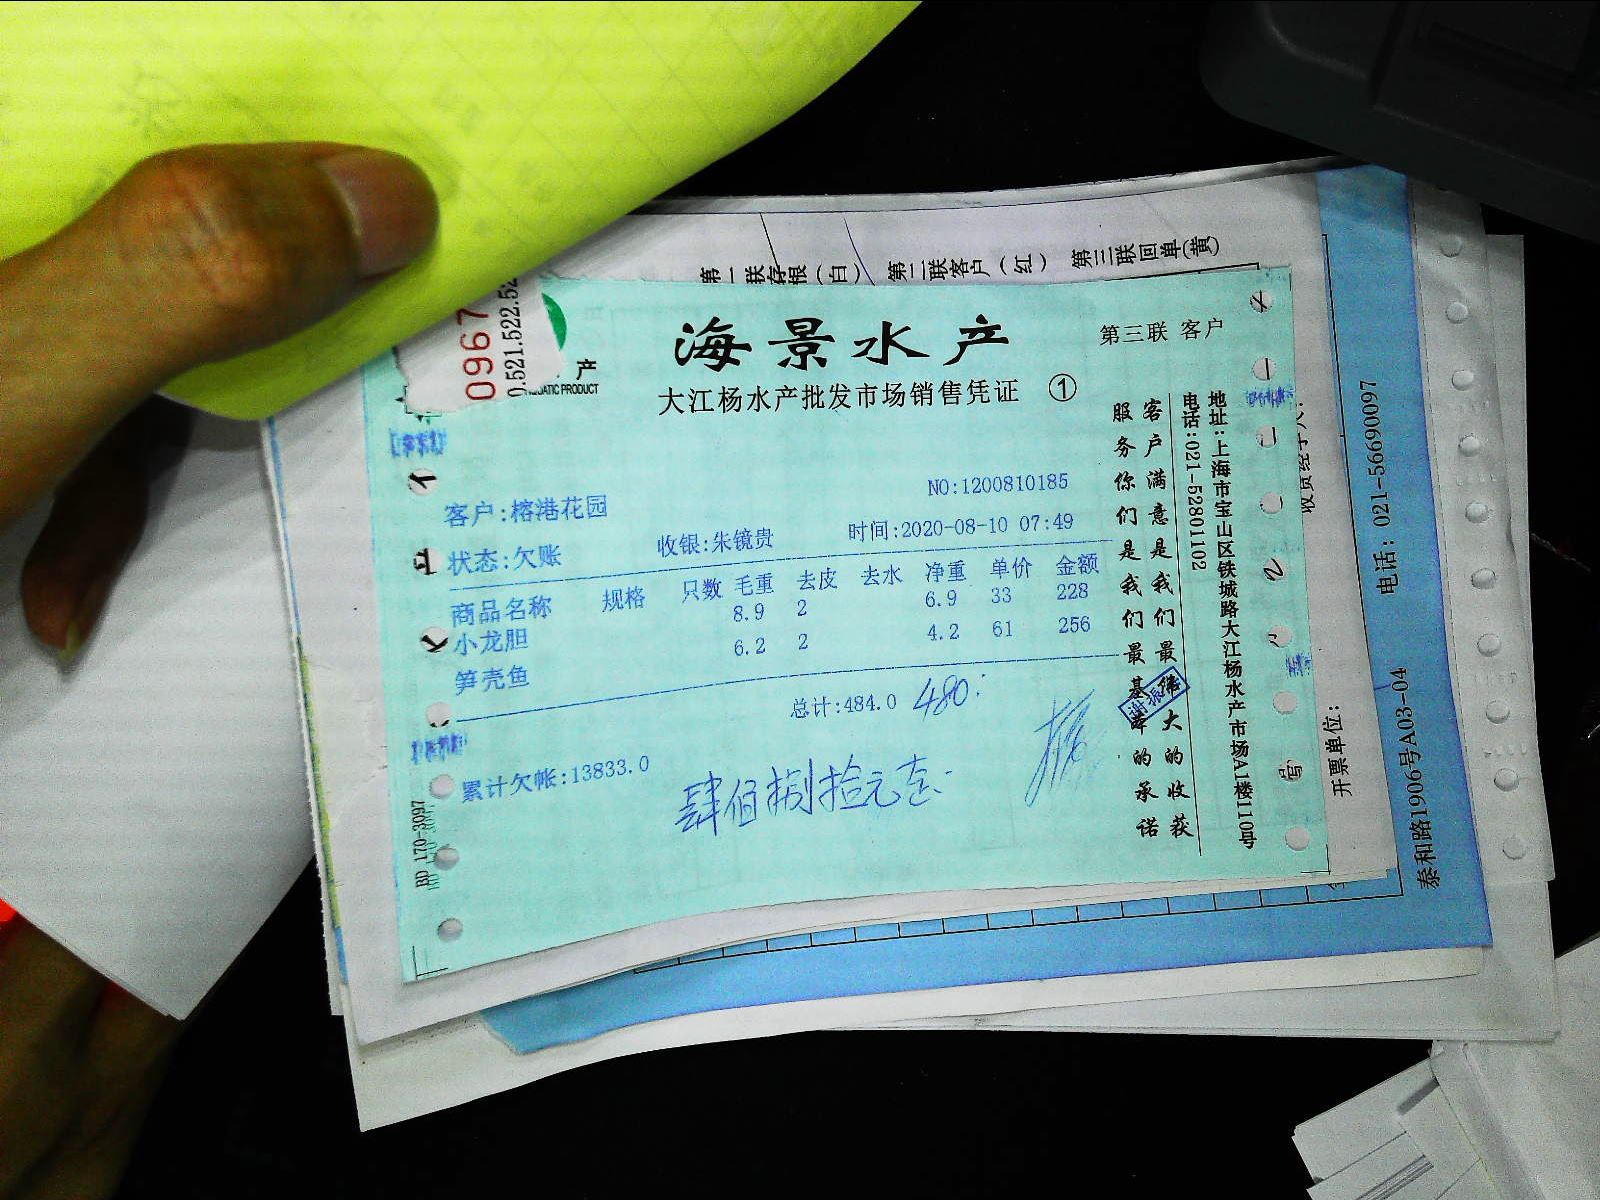 第一联存根（白） 第二联客户（红） 第三联回单（黄）
0967
0.521.522.52
产
QUATIC PRODUCT
海景水产
第三联 客户
大江杨水产批发市场销售凭证 ①
NO:1200810185
客户:榕港花园
时间:2020-08-10 07:49
收银:朱镜贵
状态:欠账
商品名称 规格 只数 毛重 去皮 去水 净重 单价 金额
小龙胆 8.9 2 6.9 33 228
笋壳鱼 6.2 2 4.2 61 256
总计:484.0 480
累计欠帐:13833.0
肆佰捌拾元正
客户满意是我们最大的收获
服务你们是我们最基本的承诺
地址:上海市宝山区铁城路大江杨水产市场A1楼110号
电话:021-52801102
BD 170-3097
收货经手人:
开票单位:
电话: 021-56690097
泰和路1906号A03-04